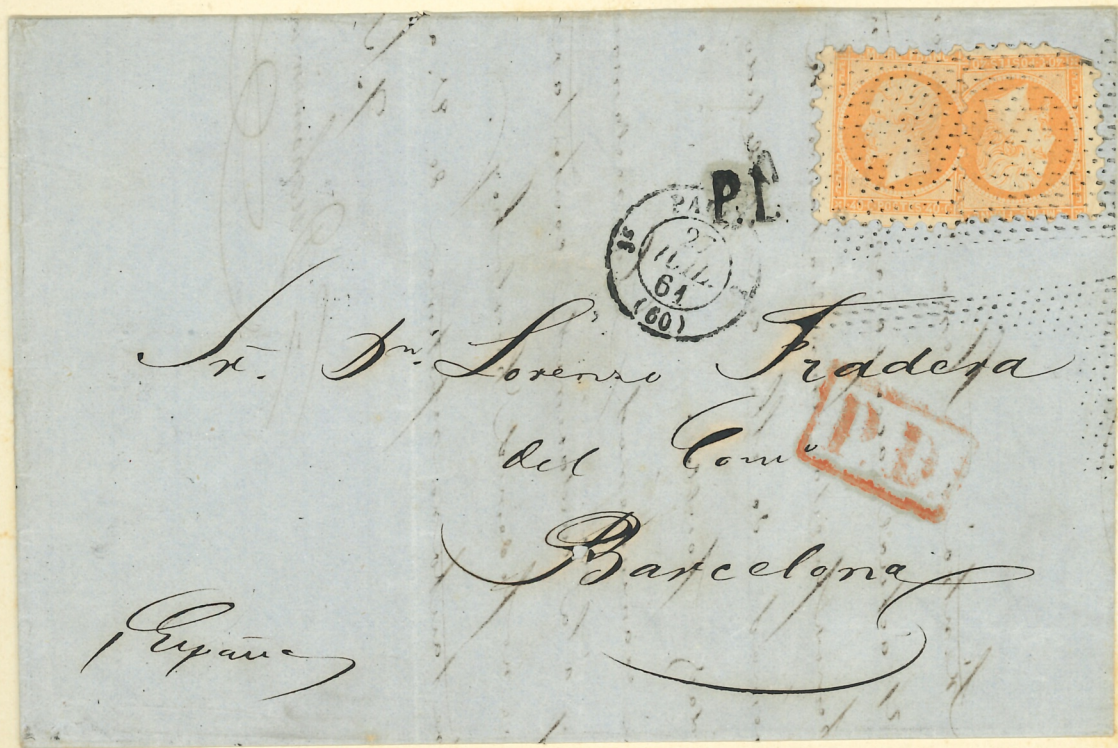 P.D.
3E
61
(60)
Sr. Dn. Lorenzo Fradera
del Como
P.D.
Barcelona
España